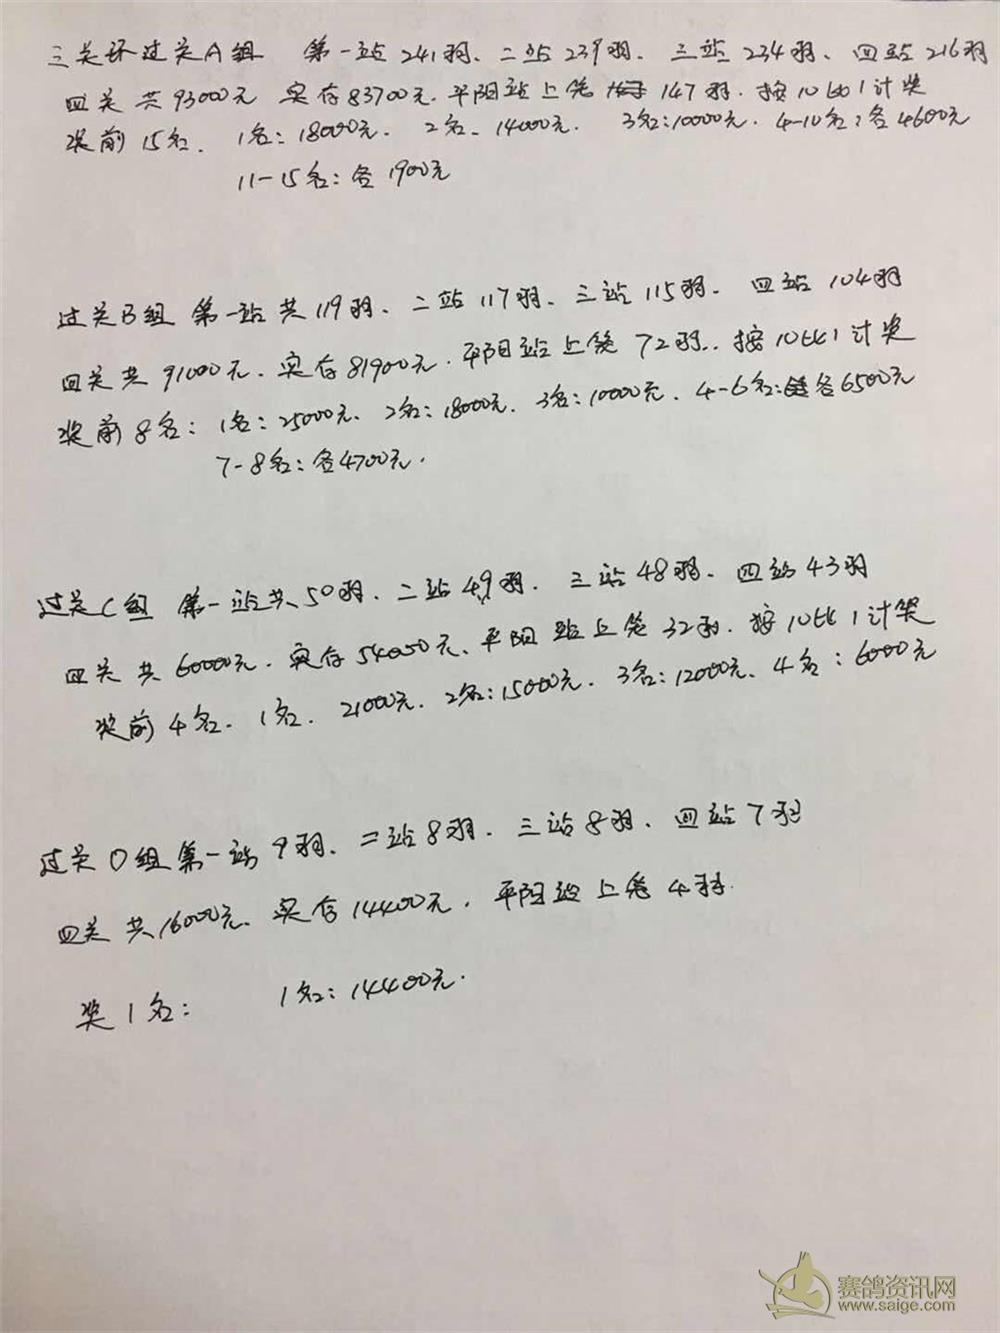 三关环过关A组 第一站241羽、二站239羽、三站234羽、四站216羽
四关共93000元 实存83700元.平阳站上笼147羽.按10比1计奖
奖前15名. 1名:18000元. 2名.14000元. 3名:10000元.4-10名:各4600元
11-15名:各1900元
过关B组 第一站共119羽、二站117羽、三站115羽. 四站104羽
四关共91000元.实存81900元.平阳站上笼72羽..按10比1计奖
奖前8名: 1名:25000元、2名:18000元.3名:10000元.4-6名:各6500元
7-8名:各4700元.
过关C组 第一站共50羽、二站49羽. 三站48羽、四站43羽
四关共60000元.实存54000元、平阳站上笼32羽.按10比1计奖
奖前4名. 1名. 21000元.2名:15000元.3名:12000元、4名:6000元
过关D组第一站9羽、二站8羽.三站8羽、四站7羽
四关共16000元、实存14400元.平阳站上笼4羽.
奖1名: 1名:14400元.
赛鸽资讯网
www.saige.com